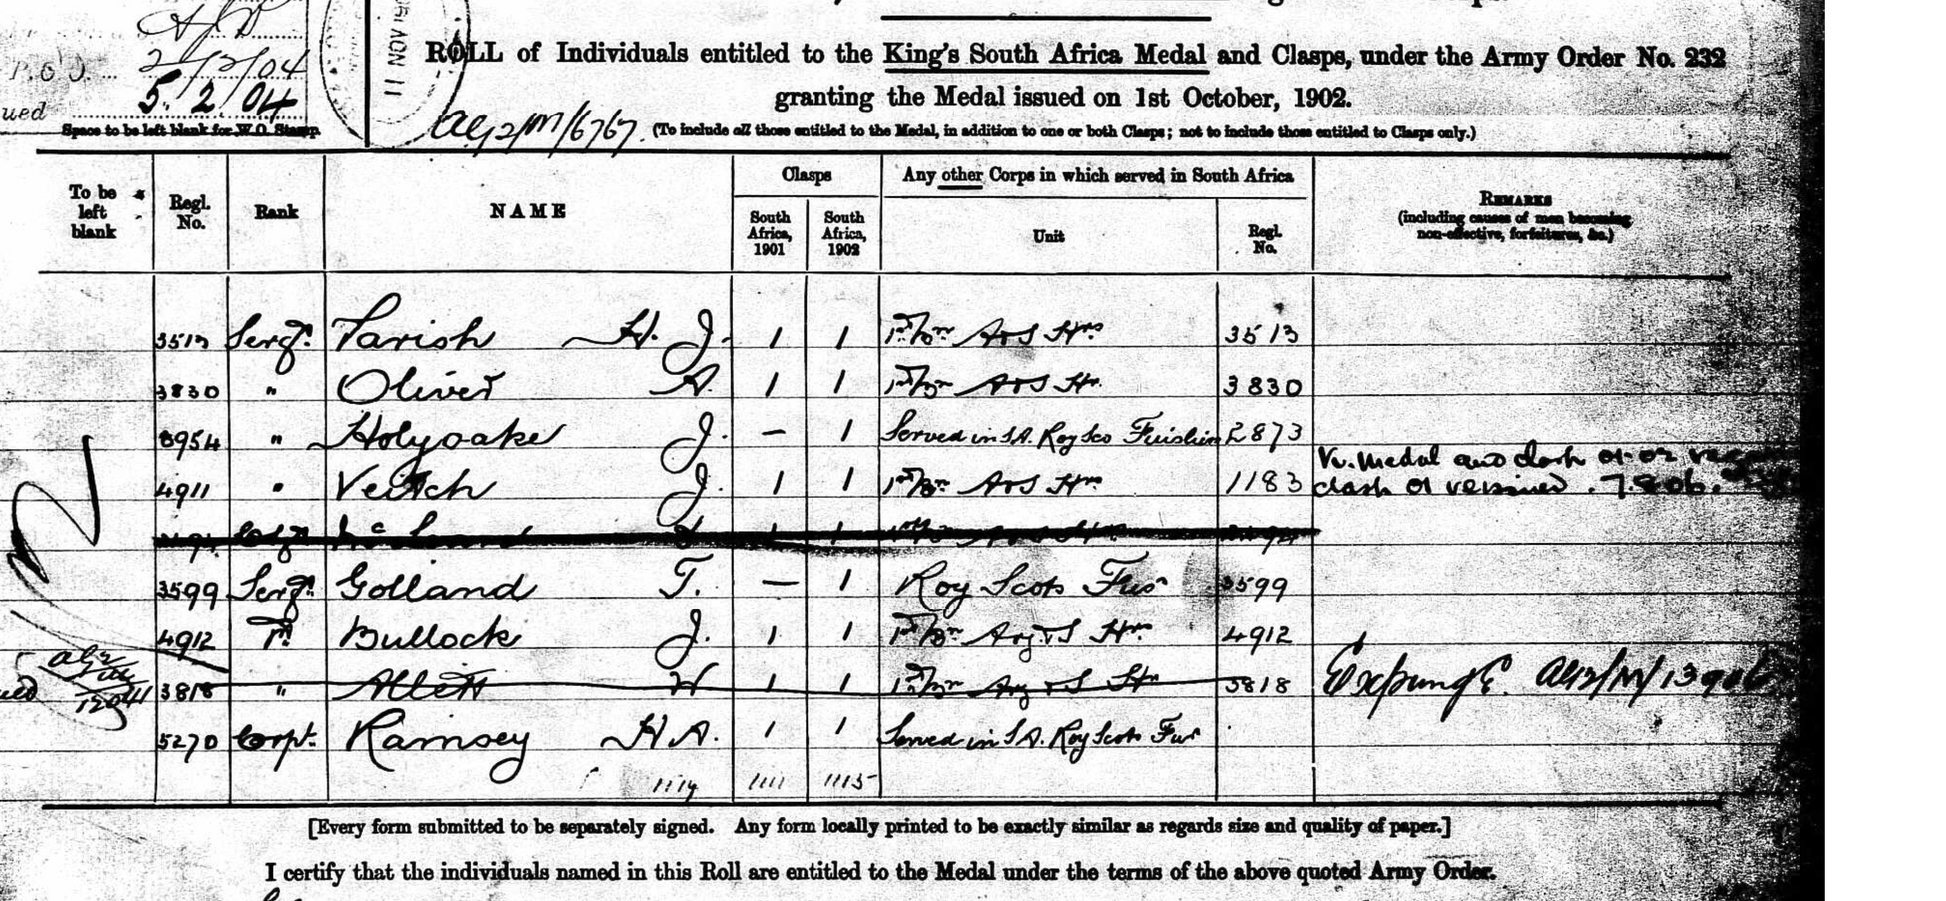 P.O.J. 2/2/04
ued 5.2.04
Space to be left blank for W.O. Stamp.
11 NOV
ROLL of Individuals entitled to the King's South Africa Medal and Clasps, under the Army Order No. 232
granting the Medal issued on 1st October, 1902.
AG2/M/6767. (To include all those entitled to the Medal, in addition to one or both Clasps; not to include those entitled to Clasps only.)
To be left blank Regl. No. Rank NAME Clasps South Africa, 1901 South Africa, 1902 Any other Corps in which served in South Africa Unit Regl. No. REMARKS (including causes of men becoming non-effective, forfeitures, &c.)
3513 Sergt. Parish H. J. 1 1 1st Bn A & S Hrs 3513
3830 " Oliver A. 1 1 1st Bn A & S Hrs 3830
8954 " Holyoake J. - 1 Served in S.A. Roy Sco Fusiliers 2873
4911 " Veitch J. 1 1 1st Bn A & S Hrs 1183 Medal and clasp
clasp 01 returned.
1 1
3599 Sergt. Golland T. - 1 Roy Scots Fus 3599
4912 Pt. Bullock J. 1 1 1st Bn Arg & S Hrs 4912
3818 " Allett W 1 1 1st Bn Arg & S Hrs 3818 Expunge. AG2/M/
5270 Corpl. Ramsey H.A. 1 1 Served in S.A. Roy Scots Fus
1119 1111 1115
[Every form submitted to be separately signed. Any form locally printed to be exactly similar as regards size and quality of paper.]
I certify that the individuals named in this Roll are entitled to the Medal under the terms of the above quoted Army Order.